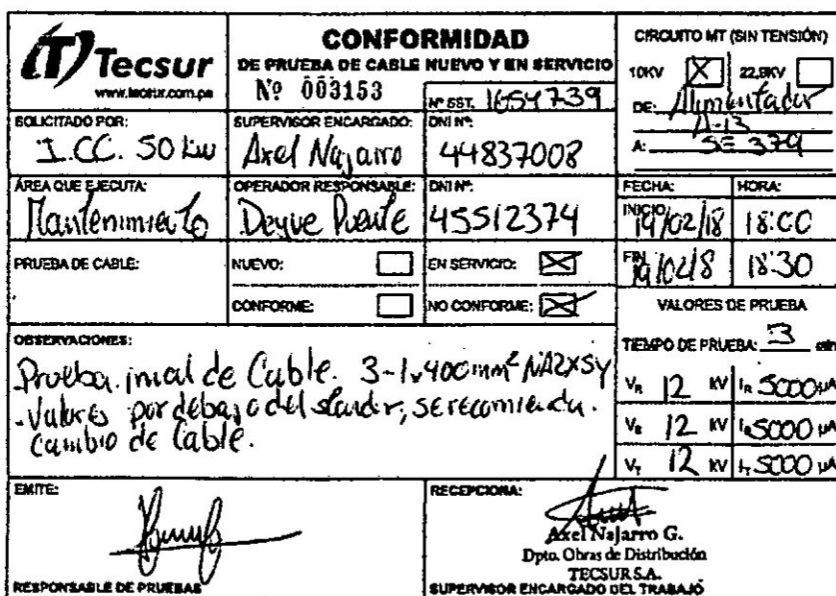 Tecsur
www.tecsur.com.pe
CONFORMIDAD
DE PRUEBA DE CABLE NUEVO Y EN SERVICIO
Nº 003153
Nº SST. 1654739
CIRCUITO MT (SIN TENSIÓN)
10KV X 22,9KV
DE: Alimentador
A-13
A: SE 379
SOLICITADO POR:
I.CC. 50 kw
SUPERVISOR ENCARGADO:
Axel Najarro
DNI Nº:
44837008
ÁREA QUE EJECUTA:
Mantenimiento
OPERADOR RESPONSABLE:
Deyve Puente
DNI Nº:
45512374
FECHA: HORA:
INICIO 19/02/18 18:00
FIN 19/02/8 18:30
PRUEBA DE CABLE:
NUEVO:
EN SERVICIO: X
CONFORME:
NO CONFORME: X
VALORES DE PRUEBA
TIEMPO DE PRUEBA: 3 min
VR 12 KV IR 5000 µA
VS 12 KV IS 5000 µA
VT 12 KV IT 5000 µA
OBSERVACIONES:
Prueba inicial de Cable. 3-1x400mm² NA2XSY
- Valores por debajo del standar, se recomienda.
cambio de Cable.
EMITE:
RESPONSABLE DE PRUEBAS
RECEPCIONA:
Axel Najarro G.
Dpto. Obras de Distribución
TECSUR S.A.
SUPERVISOR ENCARGADO DEL TRABAJÓ